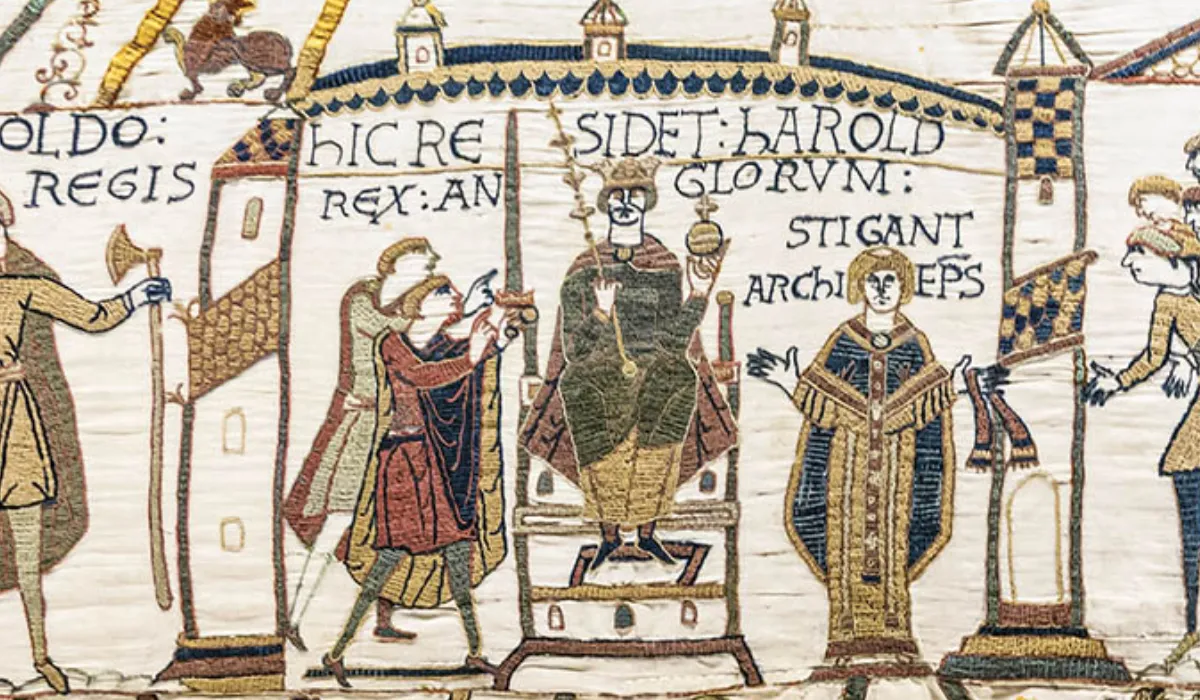 OLDO:
REGIS
hIC RE SIDET: hAROLD
REX: AN GLORVM:
STIGANT
ARChI EP̄S